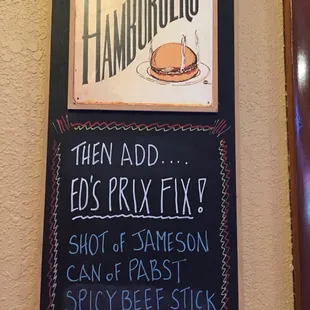 HAMBURGERS
THEN ADD....
ED'S PRIX FIX!
SHOT of JAMESON
CAN of PABST
SPICY BEEF STICK